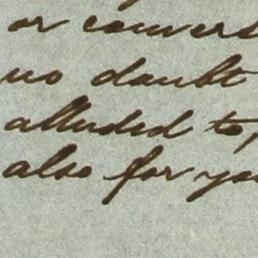 or convers
no doubt
alluded to,
also for yo